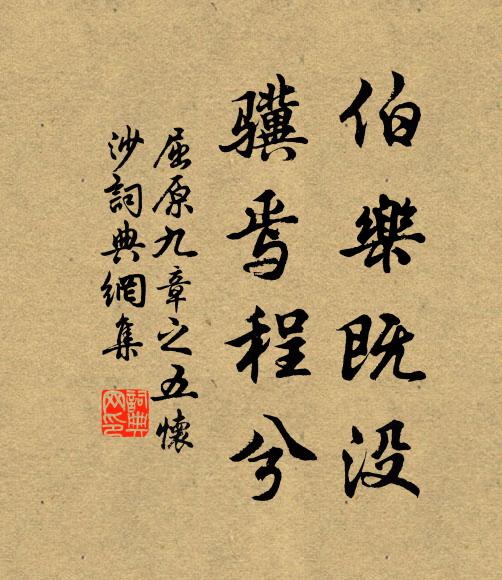 伯樂既没
驥焉程兮
屈原九章之五懷
沙詞典網集
詞典
网印